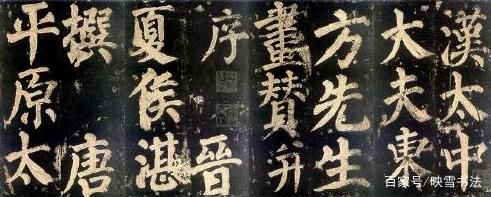 漢太中
大夫東
方先生
畫贊并
序 晉
夏侯湛
撰 唐
平原太
百家号/映雪书法